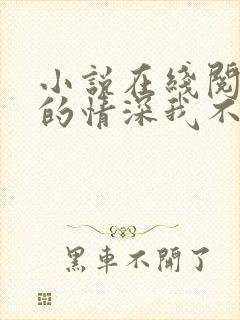 小說在綫閱
的情深我不
黑車不開了